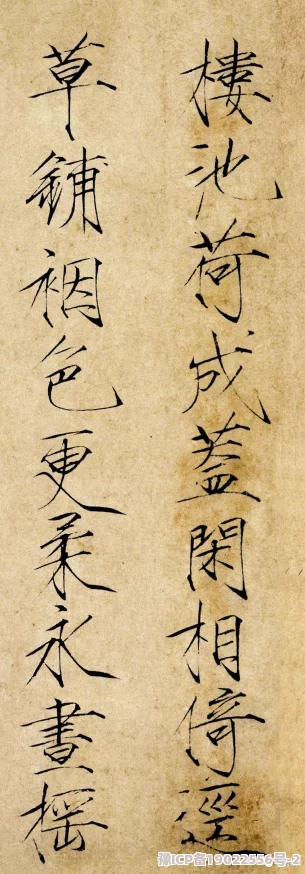 樓池荷成蓋閑相倚逕
草鋪裀色更柔永晝摇
豫ICP备19022556号-2